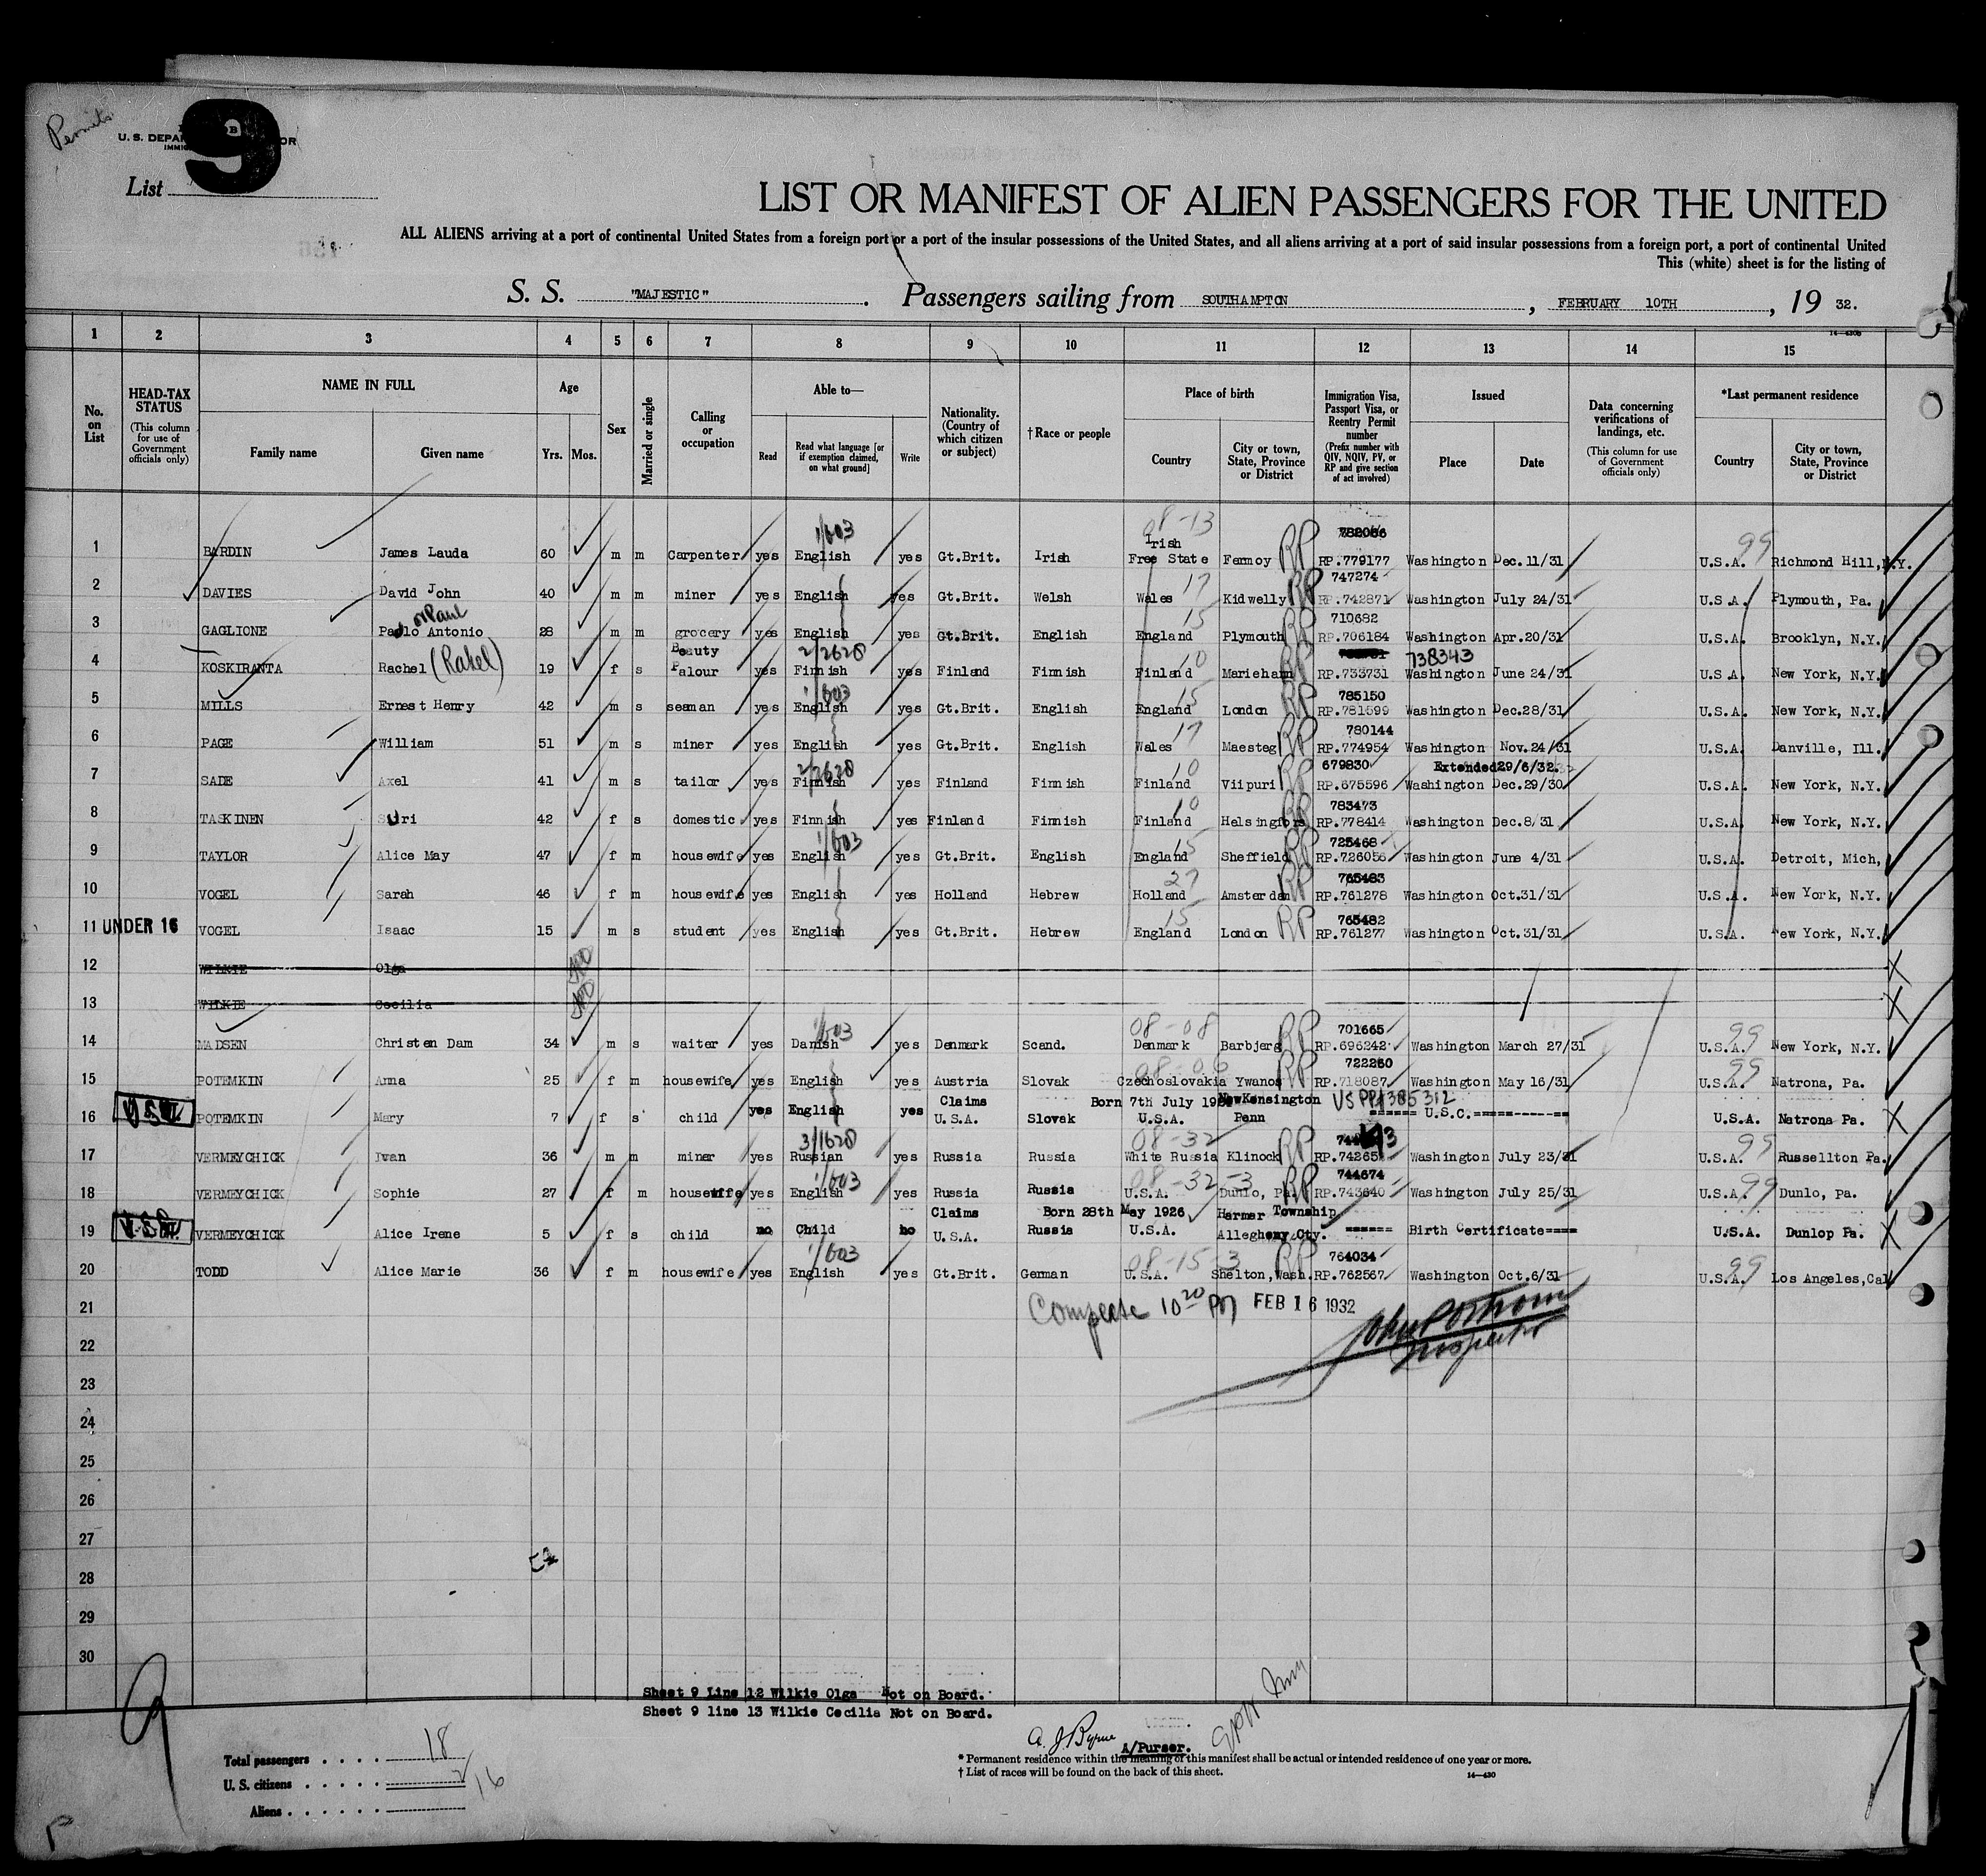 Permits
U. S. DEPA OR
9
List
LIST OR MANIFEST OF ALIEN PASSENGERS FOR THE UNITED
ALL ALIENS arriving at a port of continental United States from a foreign port or a port of the insular possessions of the United States, and all aliens arriving at a port of said insular possessions from a foreign port, a port of continental United
This (white) sheet is for the listing of
S. S. "MAJESTIC". Passengers sailing from SOUTHAMPTON, FEBRUARY 10TH, 19 32.
14—430B
1 2 3 4 5 6 7 8 9 10 11 12 13 14 15
No. on List
HEAD-TAX STATUS (This column for use of Government officials only)
NAME IN FULL Family name Given name
Age Yrs. Mos.
Sex
Married or single
Calling or occupation
Able to— Read Read what language [or if exemption claimed, on what ground] Write
Nationality. (Country of which citizen or subject)
†Race or people
Place of birth Country City or town, State, Province or District
Immigration Visa, Passport Visa, or Reentry Permit number (Prefix number with QIV, NQIV, PV, or RP and give section of act involved)
Issued Place Date
Data concerning verifications of landings, etc. (This column for use of Government officials only)
*Last permanent residence Country City or town, State, Province or District
1/603 08-13 Irish 782086 99
1 BARDIN James Lauda 60 m m Carpenter yes English yes Gt.Brit. Irish Free State Fermoy RP RP.779177 Washington Dec.11/31 U.S.A. Richmond Hill, N.Y.
17 747274
2 DAVIES David John 40 m m miner yes English yes Gt.Brit. Welsh Wales Kidwelly RP RP.742871 Washington July 24/31 U.S.A. Plymouth, Pa.
or Paul 15 710682
3 GAGLIONE Paolo Antonio 28 m m grocery yes English yes Gt.Brit. English England Plymouth RP RP.706184 Washington Apr.20/31 U.S.A. Brooklyn, N.Y.
Beauty 2/2628 10 738343
4 KOSKIRANTA Rachel (Rakel) 19 f s Palour yes Finnish yes Finland Finnish Finland Mariehamn RP RP.733731 Washington June 24/31 U.S.A. New York, N.Y.
1/603 15 785150
5 MILLS Ernest Henry 42 m s seaman yes English yes Gt.Brit. English England London RP RP.781599 Washington Dec.28/31 U.S.A. New York, N.Y.
17 780144
6 PAGE William 51 m s miner yes English yes Gt.Brit. English Wales Maesteg RP RP.774954 Washington Nov.24/31 U.S.A. Danville, Ill.
2/2628 10 679830 Extended 29/6/32.
7 SADE Axel 41 m s tailor yes Finnish yes Finland Finnish Finland Viipuri RP RP.675596 Washington Dec.29/30 U.S.A. New York, N.Y.
10 783473
8 TASKINEN Suri 42 f s domestic yes Finnish yes Finland Finnish Finland Helsingfors RP RP.778414 Washington Dec.8/31 U.S.A. New York, N.Y.
1/603 15 725468
9 TAYLOR Alice May 47 f m housewife yes English yes Gt.Brit. English England Sheffield RP RP.726056 Washington June 4/31 U.S.A. Detroit, Mich,
27 765483
10 VOGEL Sarah 46 f m housewife yes English yes Holland Hebrew Holland Amsterdam RP RP.761278 Washington Oct.31/31 U.S.A. New York, N.Y.
15 765482
11 UNDER 16 VOGEL Isaac 15 m s student yes English yes Gt.Brit. Hebrew England London RP RP.761277 Washington Oct.31/31 U.S.A. New York, N.Y.
12 WILKIE Olga X
13 WILKIE Cecilia X
1/603 08-08 701665 99
14 MADSEN Christen Dam 34 m s waiter yes Danish yes Denmark Scand. Denmark Barbjerg RP RP.696242 Washington March 27/31 U.S.A. New York, N.Y.
08-06 722260 99
15 POTEMKIN Anna 25 f m housewife yes English yes Austria Slovak Czechoslovakia Ywanos RP RP.718087 Washington May 16/31 U.S.A. Natrona, Pa.
Claims Born 7th July New Kensington
16 POTEMKIN Mary 7 f s child yes English yes U.S.A. Slovak U.S.A. Penn ====== U.S.C.===------== U.S.A. Natrona Pa. X
3/1628 08-32 99
17 VERMEYCHICK Iwan 36 m m miner yes Russian yes Russia Russia White Russia Klinock RP RP.74265 Washington July 23/31 U.S.A. Russellton Pa.
1/603 08-32-3 744674 99
18 VERMEYCHICK Sophie 27 f m housewife yes English yes Russia Russia U.S.A. Dunlo, Pa. RP RP.743640 Washington July 25/31 U.S.A. Dunlo, Pa.
Claims Born 28th May 1926 Harmar Township
19 VERMEYCHICK Alice Irene 5 f s child no Child no U.S.A. Russia U.S.A. Allegheny.Cty. ====== Birth Certificate==== U.S.A. Dunlop Pa. X
1/603 08-15-3 764034 99
20 TODD Alice Marie 36 f m housewife yes English yes Gt.Brit. German U.S.A. Shelton, Wash. RP RP.762567 Washington Oct.6/31 U.S.A. Los Angeles,Cal
21 Complete 10 20 PM FEB 16 1932
22 Inspector
23
24
25
26
27
28
29
30
Sheet 9 Line 12 Wilkie Olga Not on Board.
Sheet 9 line 13 Wilkie Cecilia Not on Board.
9
A. J. Byrne
A/Purser.
Total passengers . . . . 18
U. S. citizens . . . . . 2
16
Aliens . . . . . .
* Permanent residence within the meaning of this manifest shall be actual or intended residence of one year or more.
† List of races will be found on the back of this sheet.
14—430